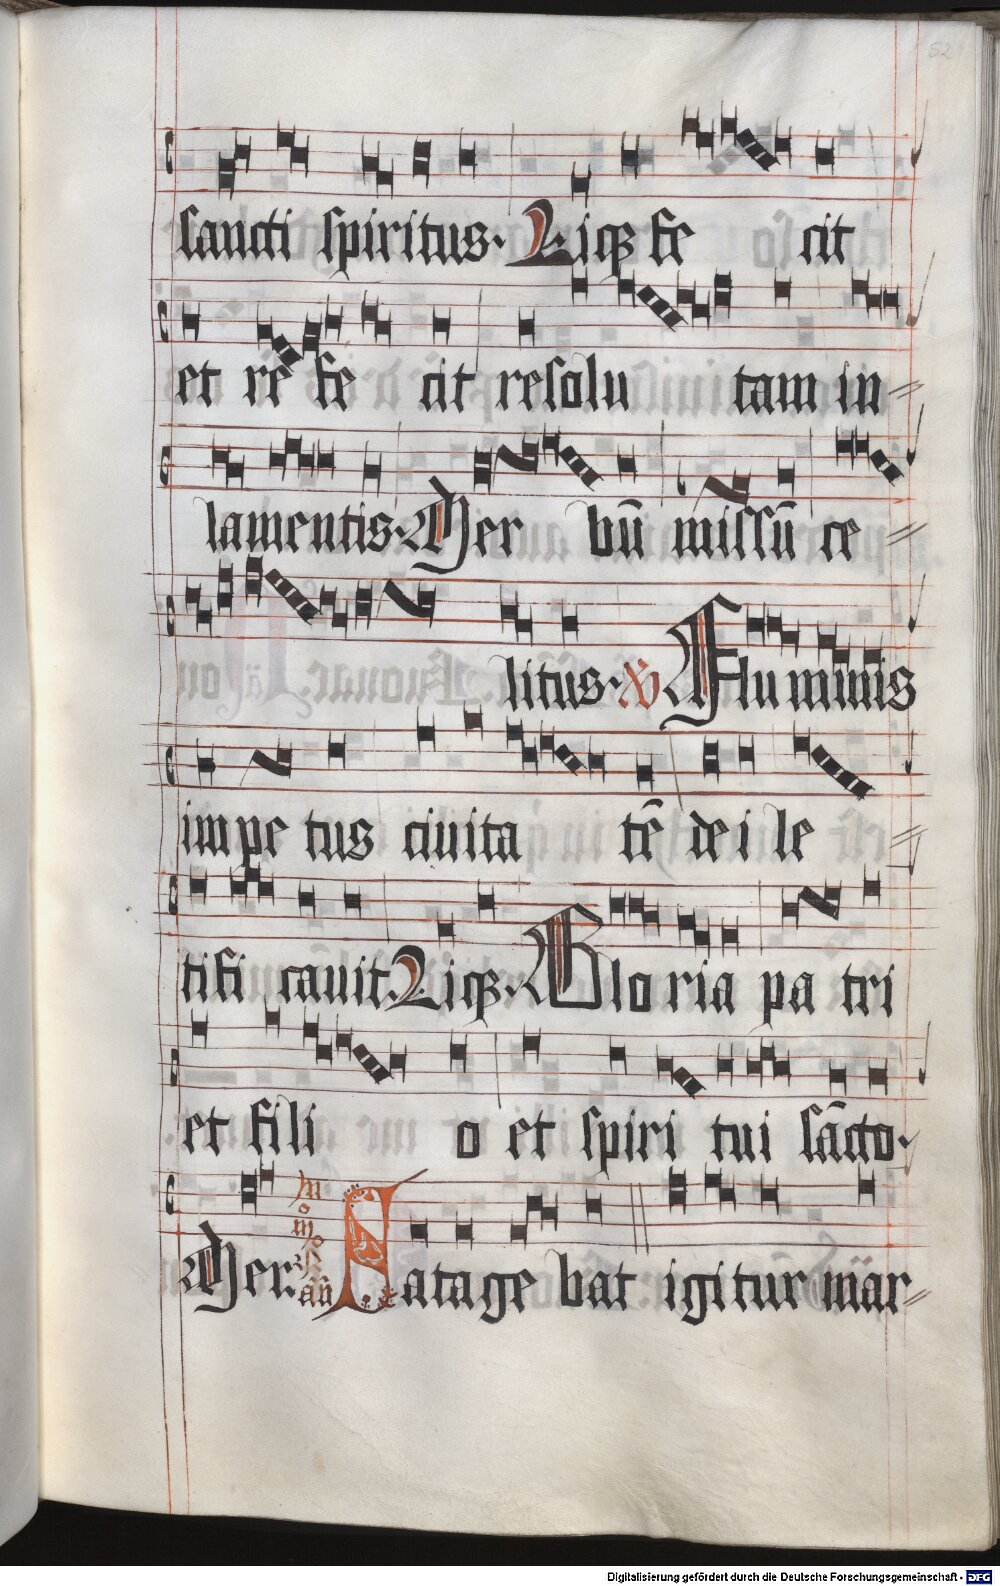 62
sancti spiritus. Liqꝫ fe cit
et re fe cit resolu tam in=
lamentis. Per bū missū ce=
litus. Fluminis
impe tus ciuita tē dei le=
tifi cauit. Liqꝫ. Gloria pa tri
et fili o et spiri tui sācto.
Per. añ Satage bat igitur mar=
Digitalisierung gefördert durch die Deutsche Forschungsgemeinschaft - DFG